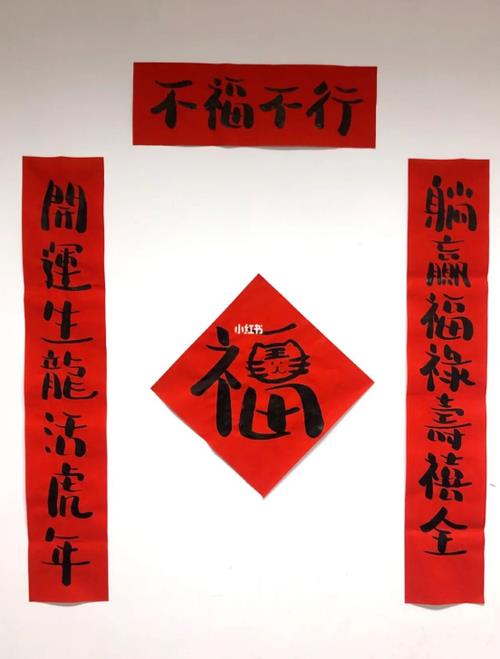 不福不行
躺赢福禄壽禧全
開運生龍活虎年
福
小红书